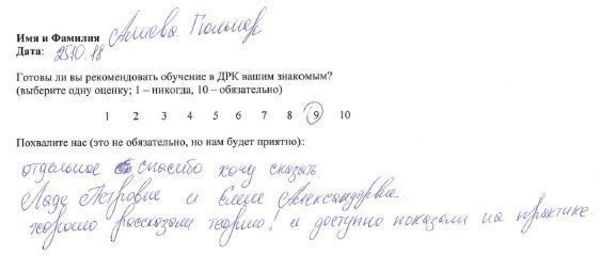 Имя и Фамилия Алиева Гюльнар
Дата: 25.10.18
Готовы ли вы рекомендовать обучение в ДРК вашим знакомым?
(выберите одну оценку; 1 – никогда, 10 – обязательно)
1 2 3 4 5 6 7 8 9 10
Похвалите нас (это не обязательно, но нам будет приятно)::
отдельное спасибо хочу сказать
Ладе Петровне и Елене Александровне.
хорошо рассказали теорию! и доступно показали на практике.